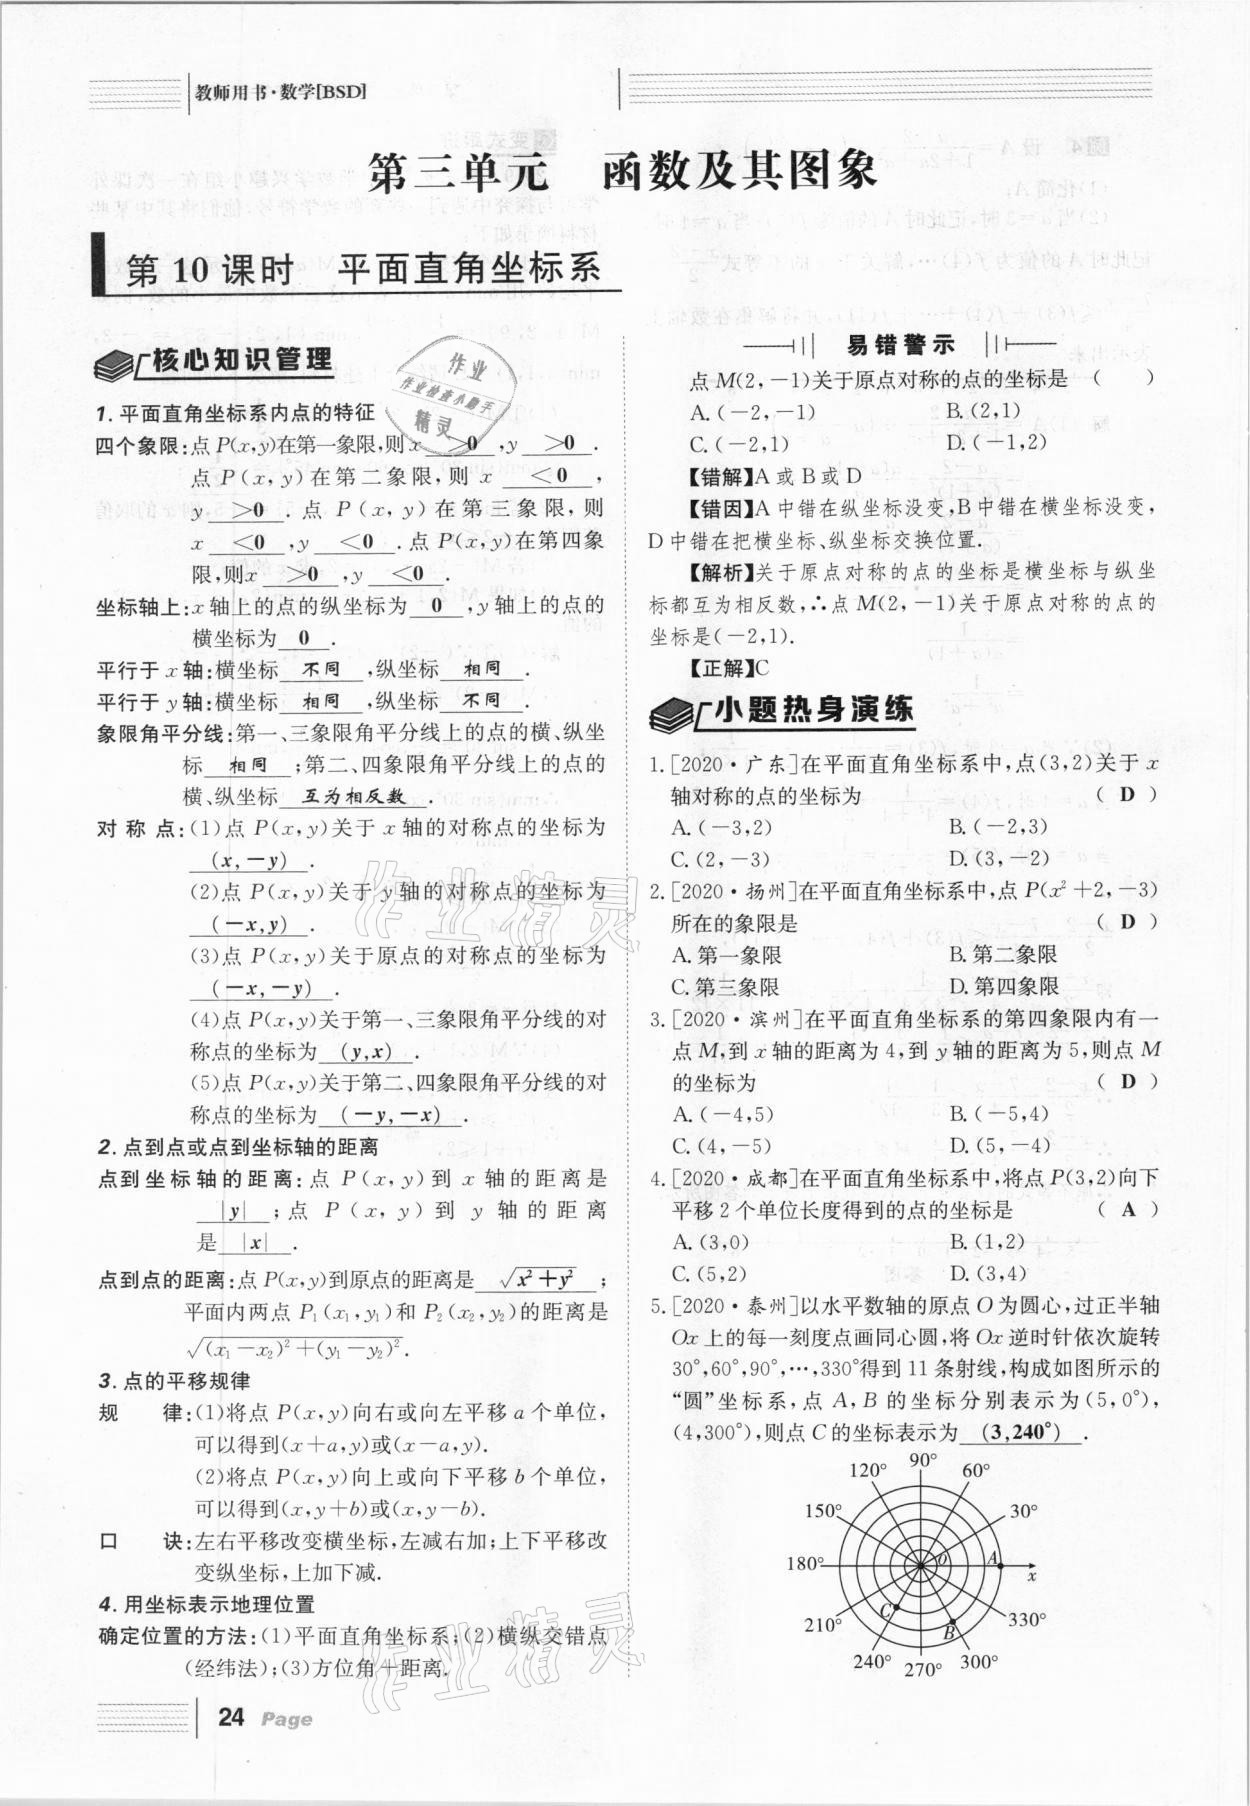 教师用书·数学[BSD]
第三单元 函数及其图象
第 10 课时 平面直角坐标系
核心知识管理
1. 平面直角坐标系内点的特征
四个象限:点 P(x,y)在第一象限,则 x >0 ,y >0 .
点 P(x,y)在第二象限,则 x <0 ,
y >0 .点 P(x,y)在第三象限,则
x <0 ,y <0 .点 P(x,y)在第四象
限,则 x >0 ,y <0 .
坐标轴上:x 轴上的点的纵坐标为 0 ,y 轴上的点的
横坐标为 0 .
平行于 x 轴:横坐标 不同 ,纵坐标 相同 .
平行于 y 轴:横坐标 相同 ,纵坐标 不同 .
象限角平分线:第一、三象限角平分线上的点的横、纵坐
标 相同 ;第二、四象限角平分线上的点的
横、纵坐标 互为相反数 .
对 称 点:(1)点 P(x,y)关于 x 轴的对称点的坐标为
(x,-y) .
(2)点 P(x,y)关于 y 轴的对称点的坐标为
(-x,y) .
(3)点 P(x,y)关于原点的对称点的坐标为
(-x,-y) .
(4)点 P(x,y)关于第一、三象限角平分线的对
称点的坐标为 (y,x) .
(5)点 P(x,y)关于第二、四象限角平分线的对
称点的坐标为 (-y,-x) .
2. 点到点或点到坐标轴的距离
点到坐标轴的距离:点 P(x,y)到 x 轴的距离是
|y| ;点 P(x,y)到 y 轴的距离
是 |x| .
点到点的距离:点 P(x,y)到原点的距离是 √(x²+y²) ;
平面内两点 P₁(x₁,y₁)和 P₂(x₂,y₂)的距离是
√((x₁-x₂)²+(y₁-y₂)²).
3. 点的平移规律
规 律:(1)将点 P(x,y)向右或向左平移 a 个单位,
可以得到(x+a,y)或(x-a,y).
(2)将点 P(x,y)向上或向下平移 b 个单位,
可以得到(x,y+b)或(x,y-b).
口 诀:左右平移改变横坐标,左减右加;上下平移改
变纵坐标,上加下减.
4. 用坐标表示地理位置
确定位置的方法:(1)平面直角坐标系;(2)横纵交错点
(经纬法);(3)方位角+距离.
24 Page
易错警示
点 M(2,-1)关于原点对称的点的坐标是 ( )
A.(-2,-1) B.(2,1)
C.(-2,1) D.(-1,2)
【错解】A 或 B 或 D
【错因】A 中错在纵坐标没变,B 中错在横坐标没变,
D 中错在把横坐标、纵坐标交换位置.
【解析】关于原点对称的点的坐标是横坐标与纵坐
标都互为相反数,∴点 M(2,-1)关于原点对称的点的
坐标是(-2,1).
【正解】C
小题热身演练
1. [2020·广东]在平面直角坐标系中,点(3,2)关于 x
轴对称的点的坐标为 ( D )
A.(-3,2) B.(-2,3)
C.(2,-3) D.(3,-2)
2. [2020·扬州]在平面直角坐标系中,点 P(x²+2,-3)
所在的象限是 ( D )
A. 第一象限 B. 第二象限
C. 第三象限 D. 第四象限
3. [2020·滨州]在平面直角坐标系的第四象限内有一
点 M,到 x 轴的距离为 4,到 y 轴的距离为 5,则点 M
的坐标为 ( D )
A.(-4,5) B.(-5,4)
C.(4,-5) D.(5,-4)
4. [2020·成都]在平面直角坐标系中,将点 P(3,2)向下
平移 2 个单位长度得到的点的坐标是 ( A )
A.(3,0) B.(1,2)
C.(5,2) D.(3,4)
5. [2020·泰州]以水平数轴的原点 O 为圆心,过正半轴
Ox 上的每一刻度点画同心圆,将 Ox 逆时针依次旋转
30°,60°,90°,…,330°得到 11 条射线,构成如图所示的
“圆”坐标系,点 A,B 的坐标分别表示为(5,0°),
(4,300°),则点 C 的坐标表示为 (3,240°) .
90°
120° 60°
150° 30°
180° O A x
C B
210° 330°
240° 270° 300°
作业
作业检查小助手
精灵
作业精灵
作业精灵